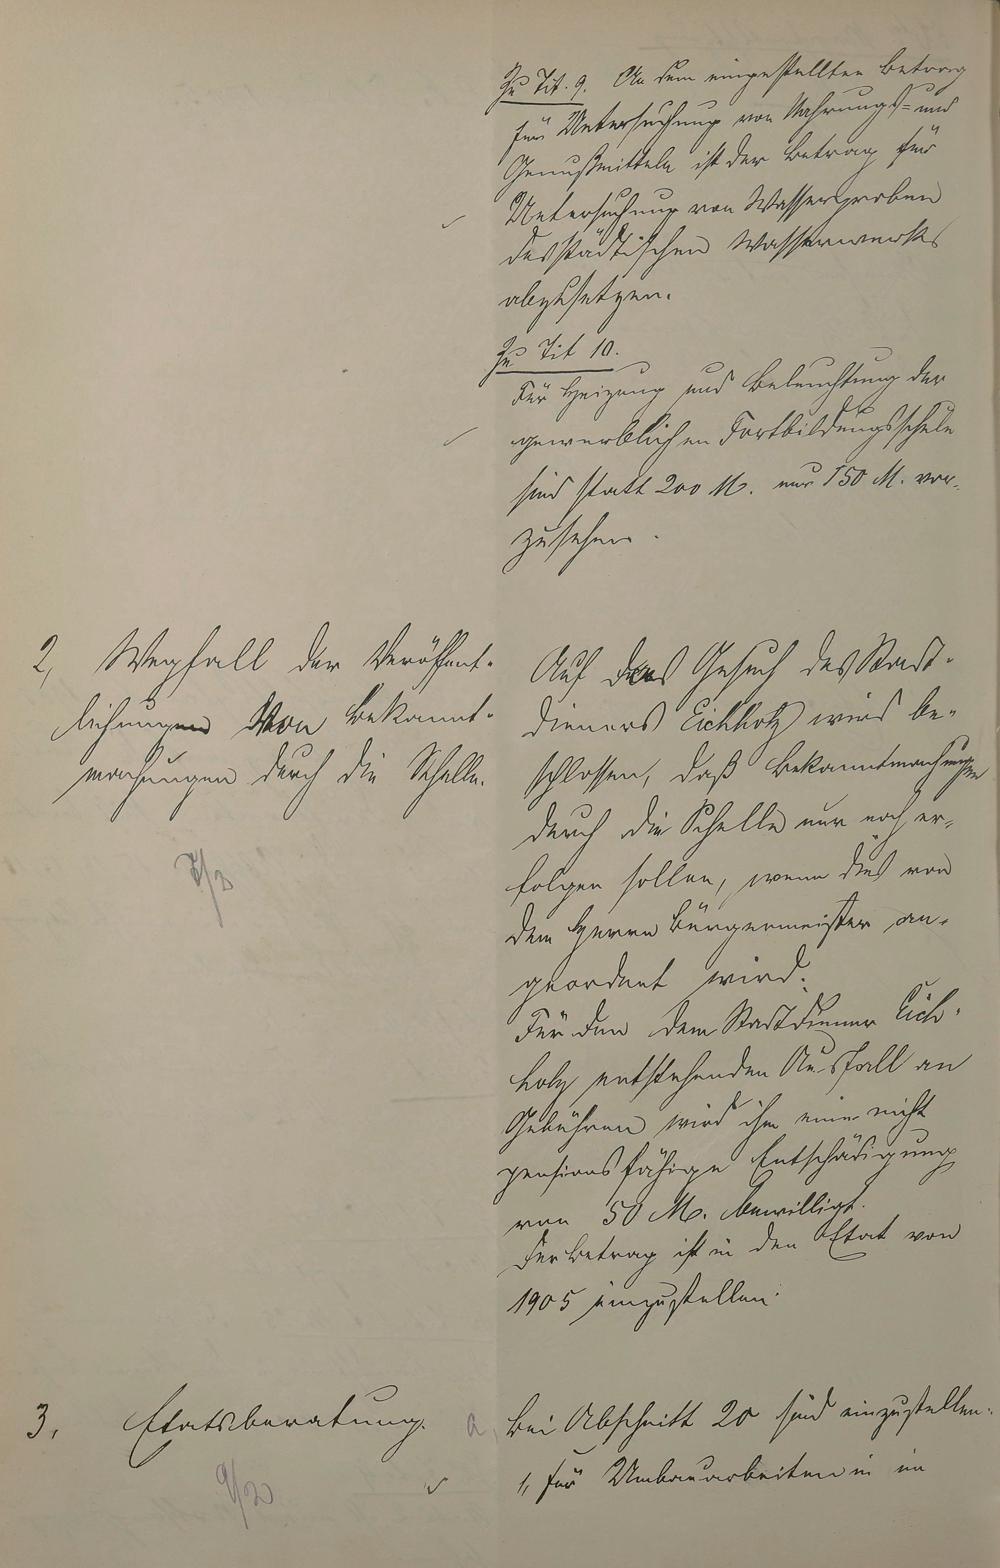 Zu Tit. 9. An dem eingestellten Betrag
für Untersuchung von Nahrungs- und
Genußmitteln ist der Betrag für
Untersuchung von Wasserproben
des städtischen Wasserwerks
abzusetzen.
Zu Tit 10.
Für Heizung und Beleuchtung der
gewerblichen Fortbildungsschule
sind statt 200 M. nur 150 M. vor-
zusehen.
2, Wegfall der Veröffent-
lichungen von Bekannt-
machungen durch die Schelle.
Auf das Gesuch des Stadt-
dieners Eichholz wird be-
schlossen, daß Bekanntmachungen
durch die Schelle nur noch er-
folgen sollen, wenn dies von
dem Herrn Bürgermeister an-
geordnet wird.
Für den dem Stadtdiener Eich-
holz entstehenden Ausfall an
Gebühren wird ihm eine nicht
pensionsfähige Entschädigung
von 50 M. bewilligt.
Der Betrag ist in den Etat von
1905 einzustellen.
3, Etatsberatung.
a, Bei Abschnitt 20 sind einzustellen:
1, für Umbauarbeiten in im